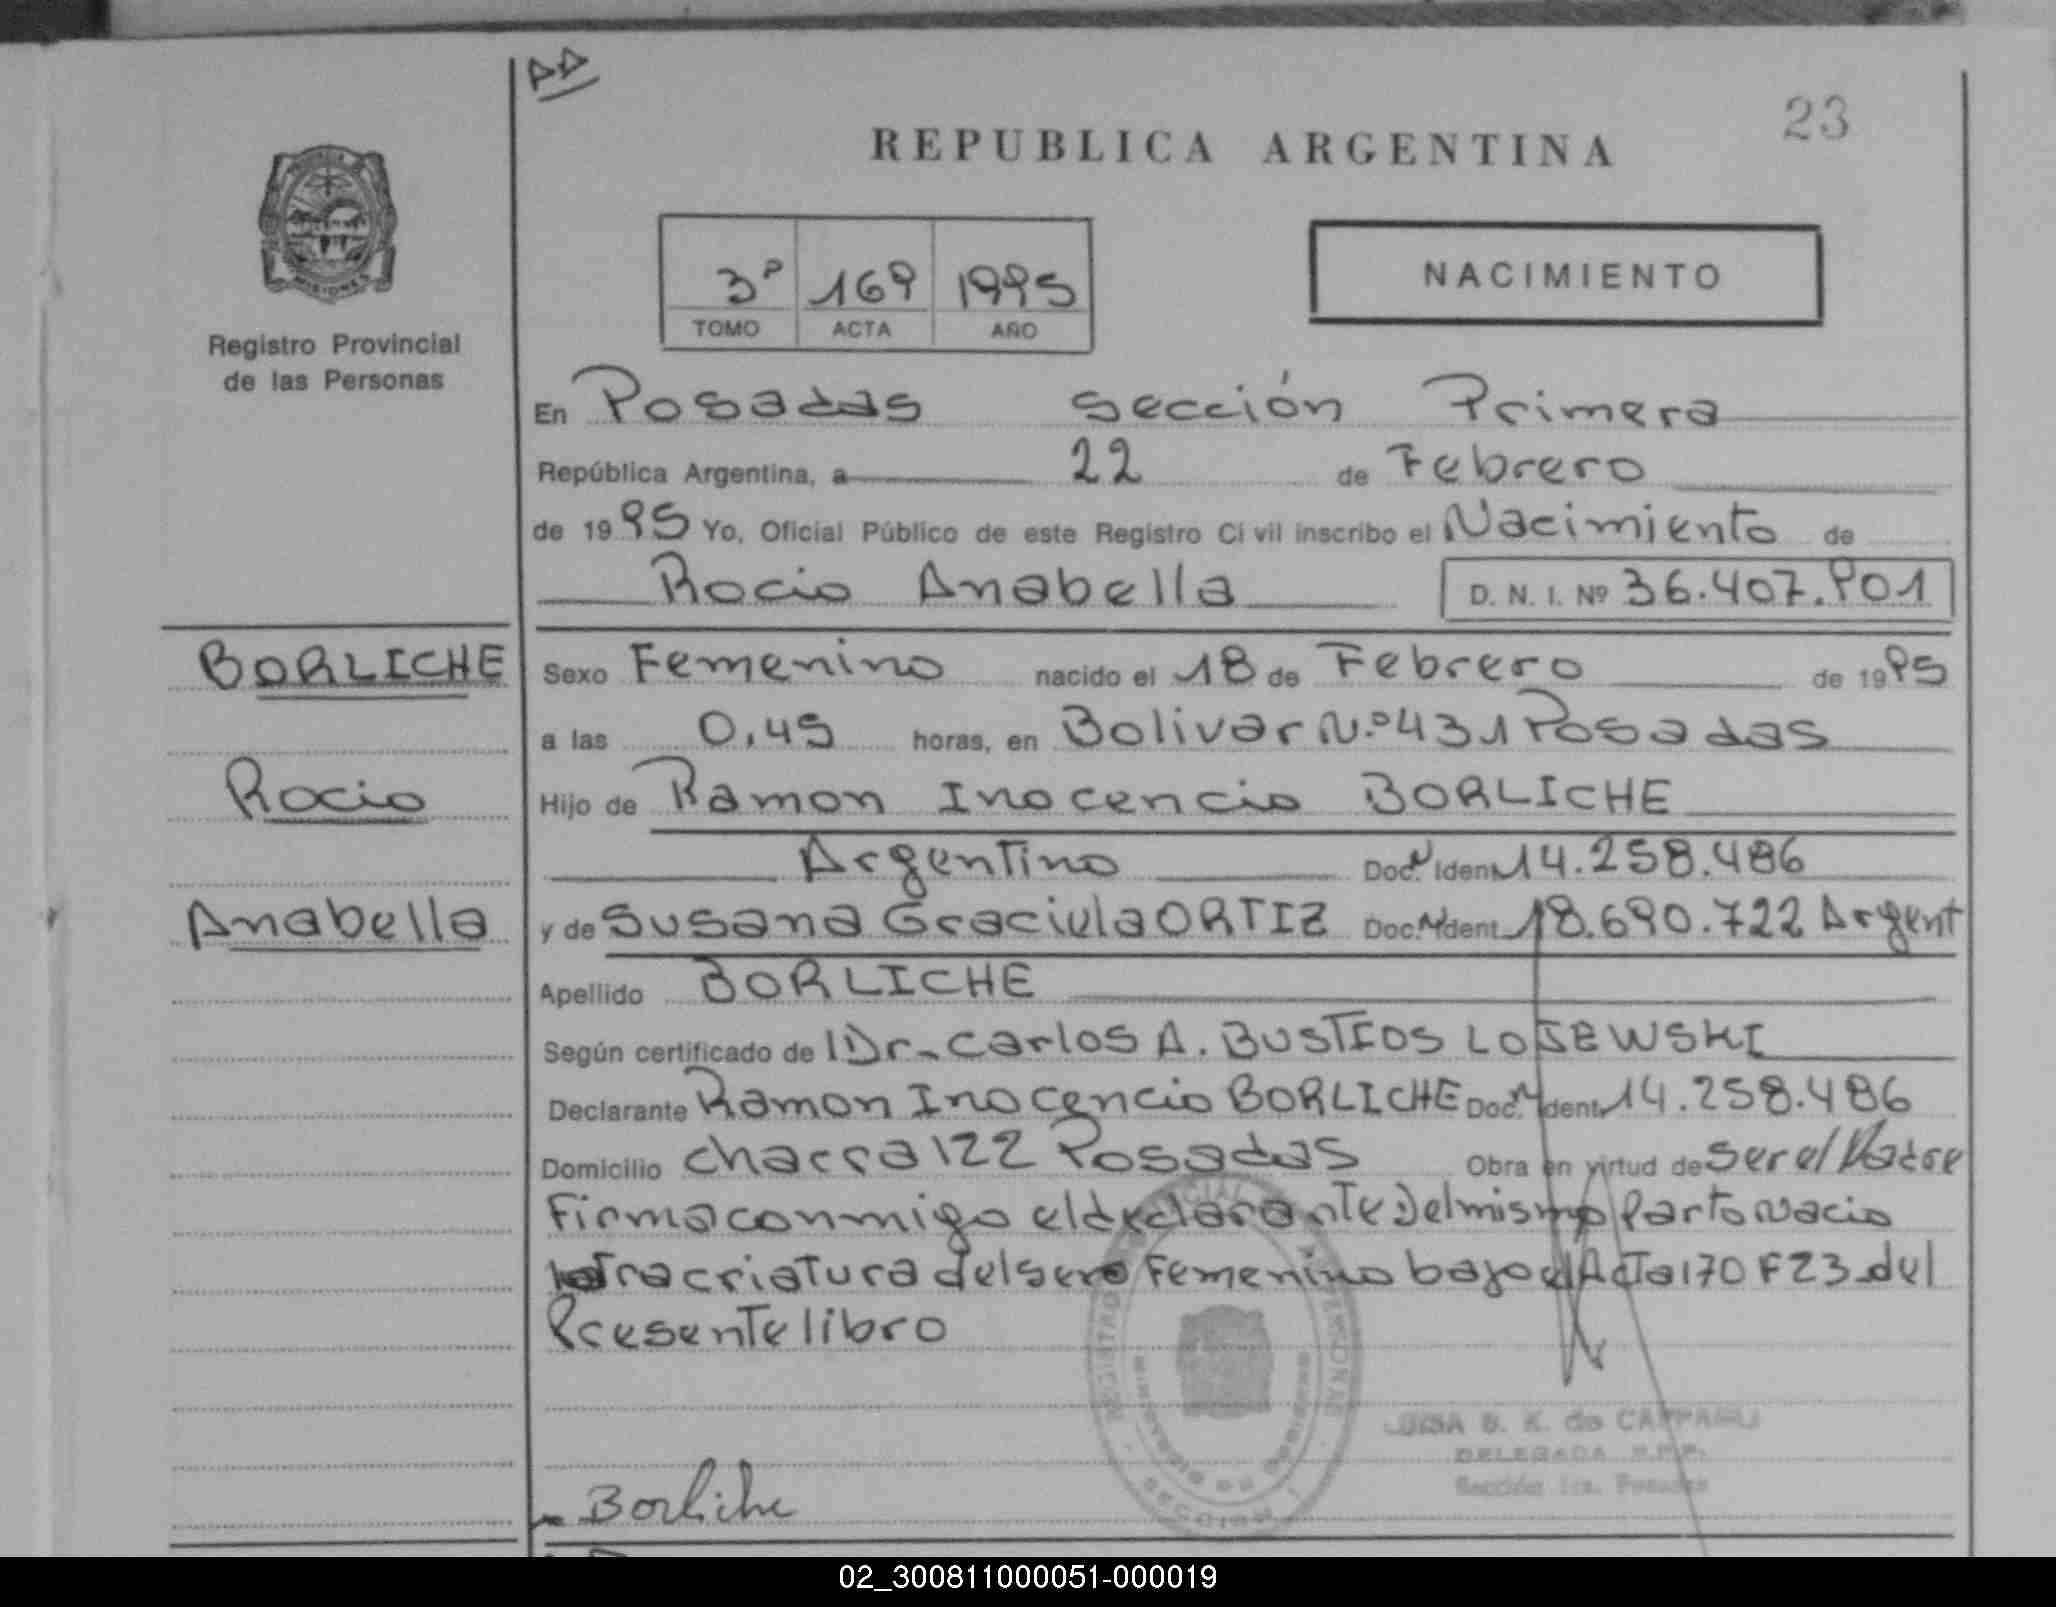 23
REPUBLICA ARGENTINA
3º 169 1995
TOMO ACTA AÑO
NACIMIENTO
MISIONES
Registro Provincial
de las Personas
En Posadas sección Primera
República Argentina, a 22 de Febrero
de 1995 Yo, Oficial Público de este Registro Civil inscribo el Nacimiento de
Rocio Anabella D. N. I. Nº 36.407.901
BORLICHE
Rocio
Anabella
Sexo Femenino nacido el 18 de Febrero de 1995
a las 0,45 horas, en Bolivar N.º 431 Posadas
Hijo de Ramon Inocencio BORLICHE
Argentino Doc. Ident. 14.258.486
y de Susana Graciela ORTIZ Doc. Ident. 18.690.722 Argent
Apellido BORLICHE
Según certificado de Dr. Carlos A. BUSTIOS LOJEWSKI
Declarante Ramon Inocencio BORLICHE Doc. Ident. 14.258.486
Domicilio chacra 122 Posadas Obra en virtud de ser el Padre
Firma conmigo el declarante Del mismo Parto Nacio
otra criatura del sexo Femenino bajo el Acta 170 F 23 del
Presente libro
DELEGADA
Sección 1ra. Posadas
Borliche
02_300811000051-000019